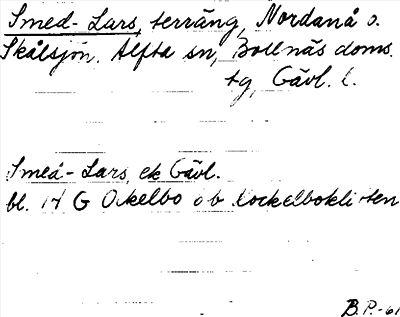 Smed-Lars, terräng, Nordanå o.
Skålsjön, Alfta sn, Bollnäs doms.
tg, Gävl. l.
Smed-Lars, ek Gävl.
bl. 14 G Ockelbo ob Lockelbokliten
B.P.-61